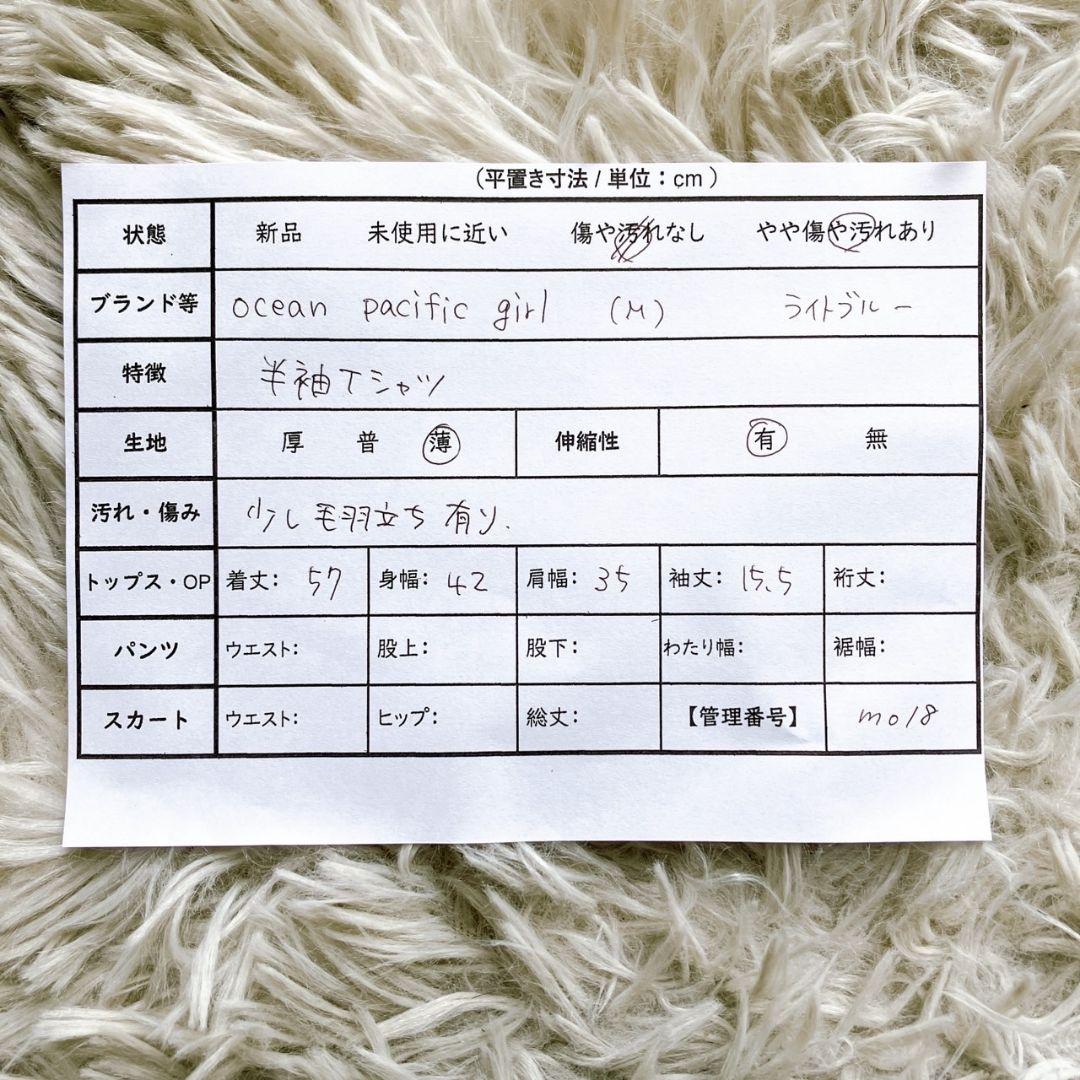 （平置き寸法 / 単位：cm ）
状態 新品 未使用に近い 傷や汚れなし やや傷や汚れあり
ブランド等 ocean pacific girl (M) ライトブルー
特徴 半袖Tシャツ
生地 厚 普 薄 伸縮性 有 無
汚れ・傷み 少し毛羽立ち有り.
トップス・OP 着丈： 57 身幅： 42 肩幅： 35 袖丈： 15.5 裄丈：
パンツ ウエスト： 股上： 股下： わたり幅： 裾幅：
スカート ウエスト： ヒップ： 総丈： 【管理番号】 mo18